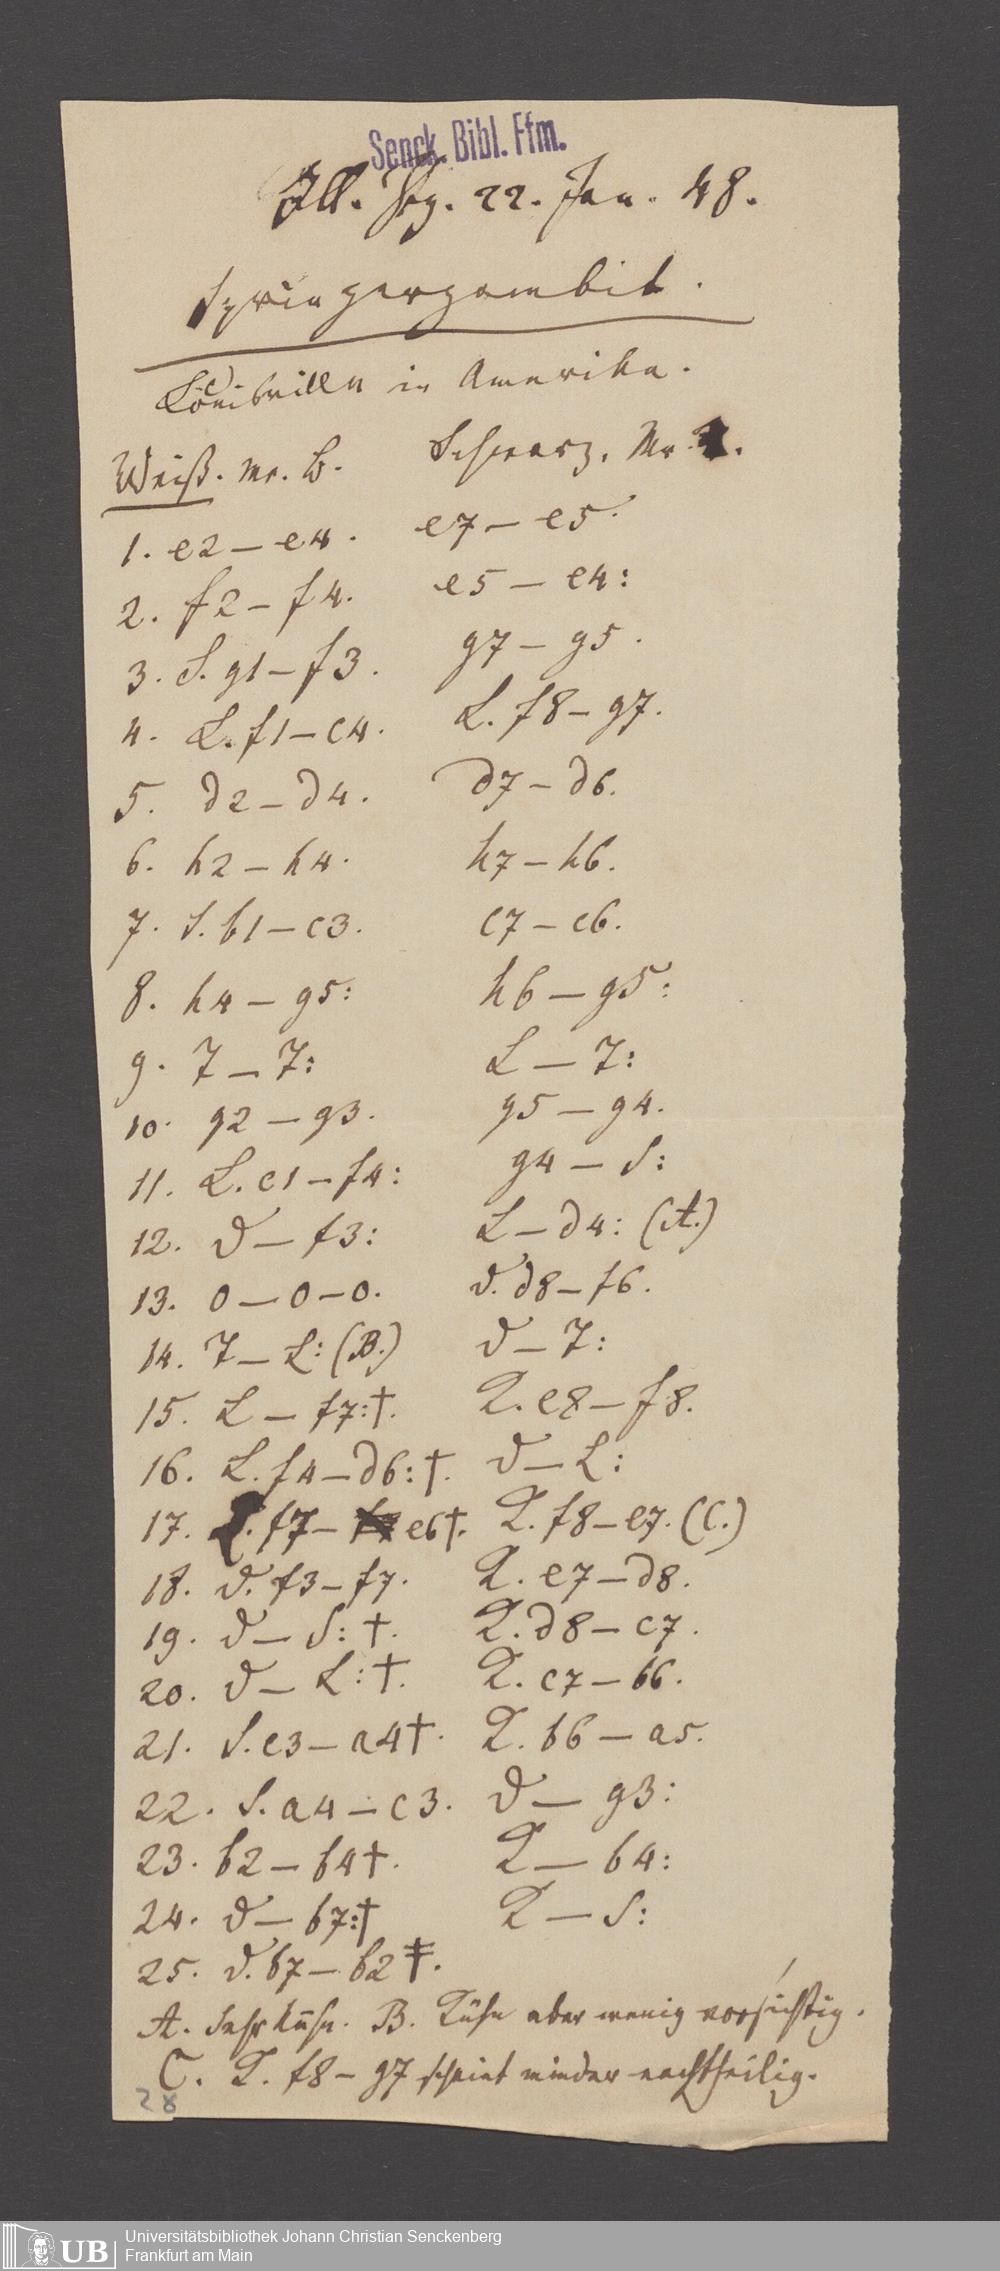 Senck. Bibl. Ffm.
Ill. Ztg. 22. Jan. 48.
Springergambit.
Louisville in Amerika.
Weiß. Mr. B. Schwarz. Mr.
1. e2 – e4. e7 – e5.
2. f2 – f4. e5 – e4:
3. S. g1 – f3. g7 – g5.
4. L. f1 – c4. L. f8 – g7.
5. d2 – d4. d7 – d6.
6. h2 – h4. h7 – h6.
7. S. b1 – c3. c7 – c6.
8. h4 – g5: h6 – g5:
9. T – T: L – T:
10. g2 – g3. g5 – g4.
11. L. c1 – f4: g4 – S:
12. D – f3: L – d4: (A.)
13. 0 – 0 – 0. D. d8 – f6.
14. T – L: (B.) D – T:
15. L – f7:†. K. e8 – f8.
16. L. f4 – d6:†. D – L:
17. L. f7 – e6†. K. f8 – e7. (C.)
18. D. f3 – f7. K. e7 – d8.
19. D – S:†. K. d8 – c7.
20. D – L:†. K. c7 – b6.
21. S. c3 – a4†. K. b6 – a5.
22. S. a4 – c3. D – g3:
23. b2 – b4†. K – b4:
24. D – b7:† K – S:
25. D. b7 – b2‡.
A. Sehr kühn. B. Kühn aber wenig vorsichtig.
C. K. f8 – g7 scheint minder nachtheilig.
28
UB
Universitätsbibliothek Johann Christian Senckenberg
Frankfurt am Main